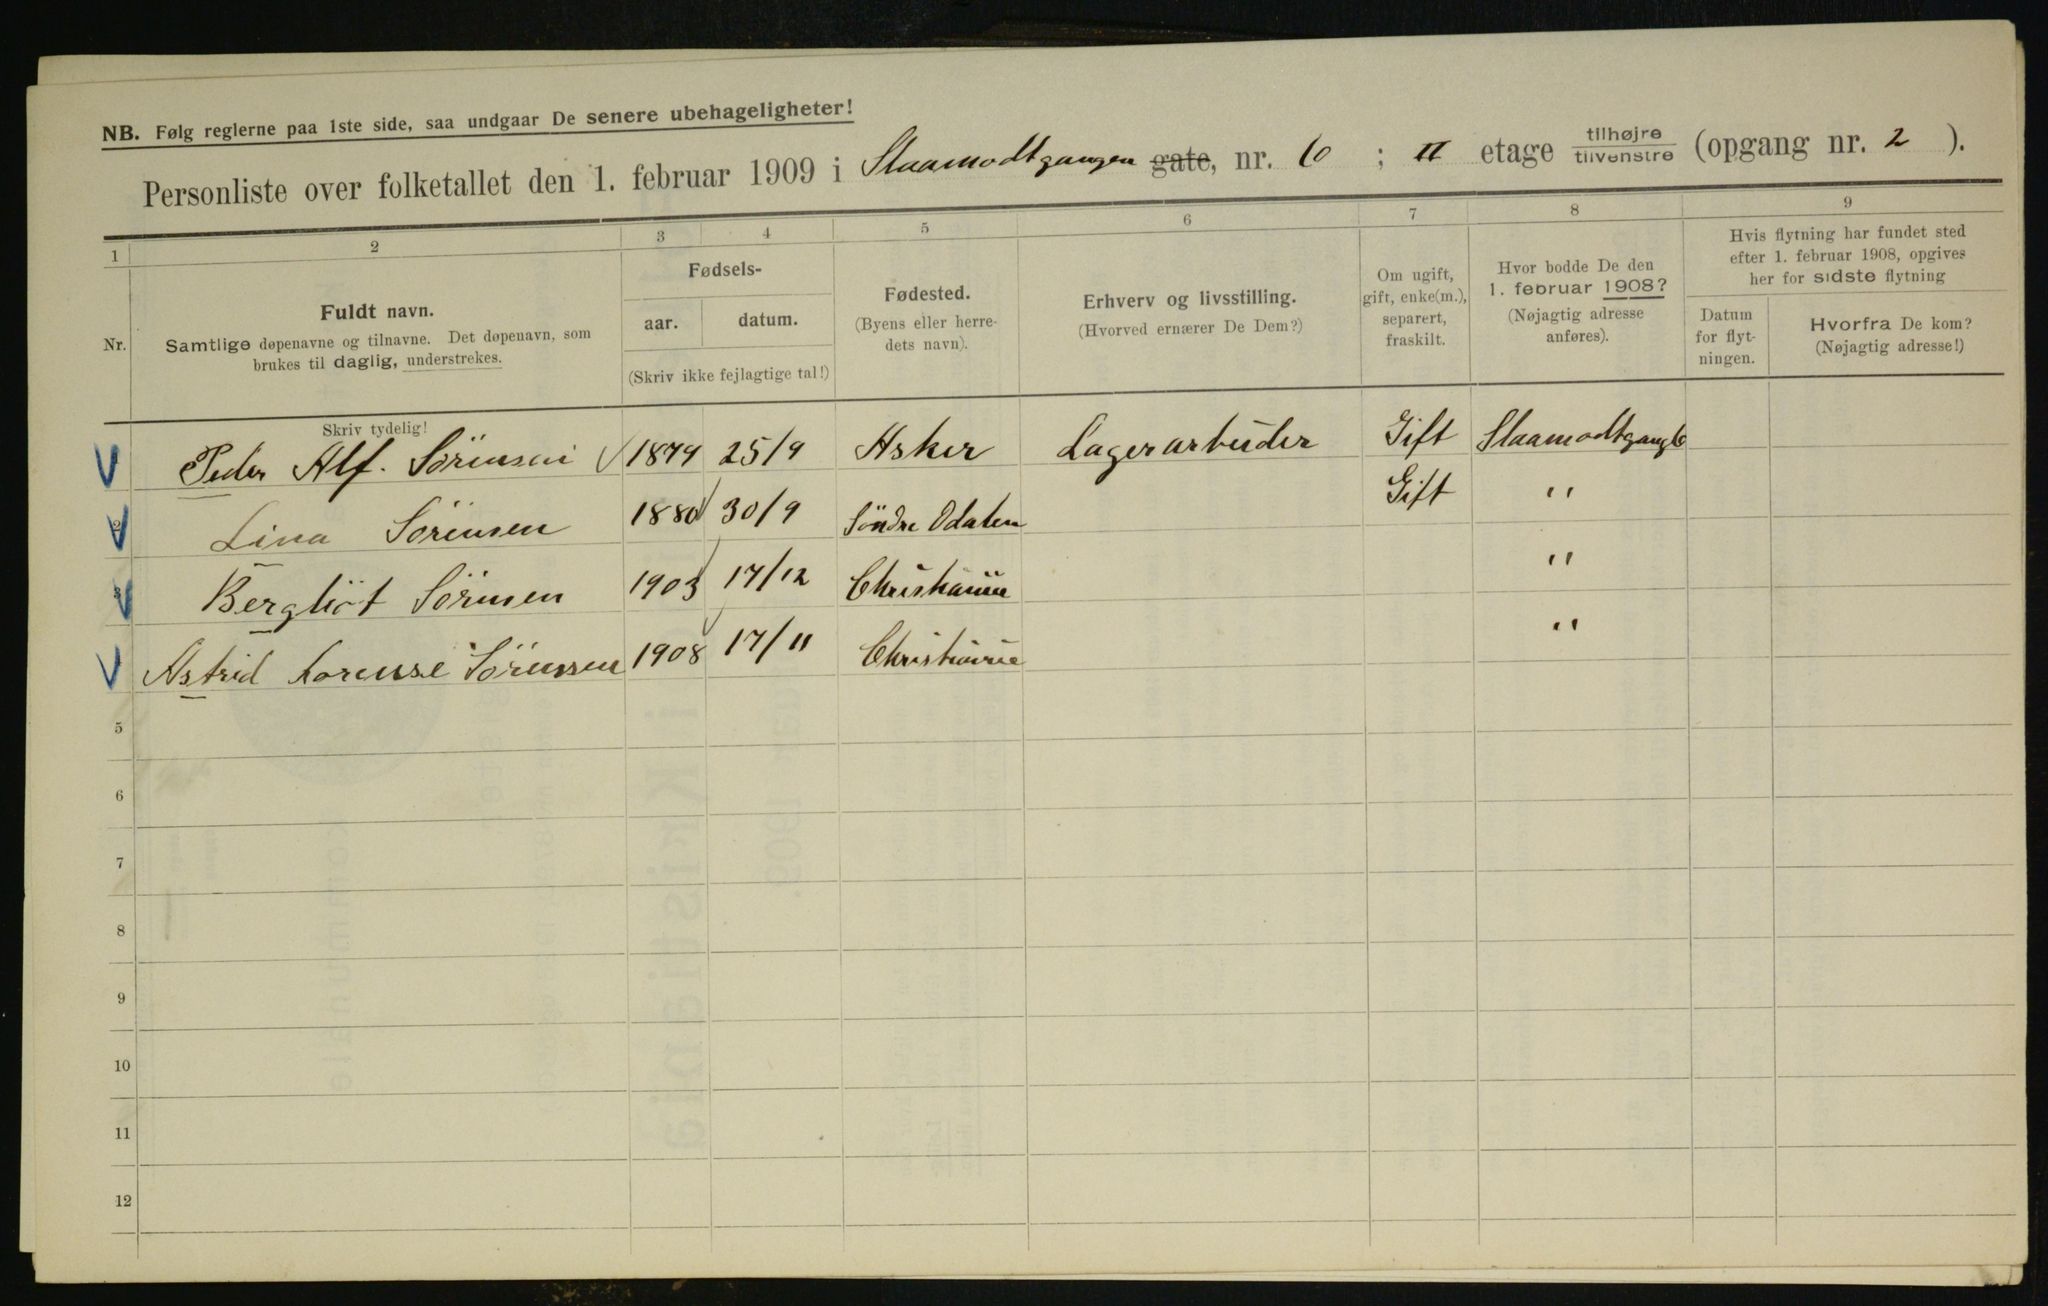 NB. Følg reglerne paa 1ste side, saa undgaar De senere ubehageligheter!
Personliste over folketallet den 1. februar 1909 i Slaamodtgangen gate, nr. 6 ; II etage tilhøjre tilvenstre (opgang nr. 2 ).
1 2 3 4 5 6 7 8 9
Nr.
Fuldt navn.
Samtlige døpenavne og tilnavne. Det døpenavn, som
brukes til daglig, understrekes.
Fødsels-
aar. datum.
(Skriv ikke fejlagtige tal!)
Fødested.
(Byens eller herre-
dets navn).
Erhverv og livsstilling.
(Hvorved ernærer De Dem?)
Om ugift,
gift, enke(m.),
separert,
fraskilt.
Hvor bodde De den
1. februar 1908?
(Nøjagtig adresse
anføres).
Hvis flytning har fundet sted
efter 1. februar 1908, opgives
her for sidste flytning
Datum
for flyt-
ningen.
Hvorfra De kom?
(Nøjagtig adresse!)
Skriv tydelig!
Peder Alf. Sörensen 1879 25/9 Asker Lagerarbeider Gift Slaamodtgang 6
2 Lina Sörensen 1880 30/9 Söndre Odalen Gift "
3 Bergliot Sörensen 1903 17/12 Christiania "
Astrid Lorense Sörensen 1908 17/11 Christiania "
5
6
7
8
9
10
11
12